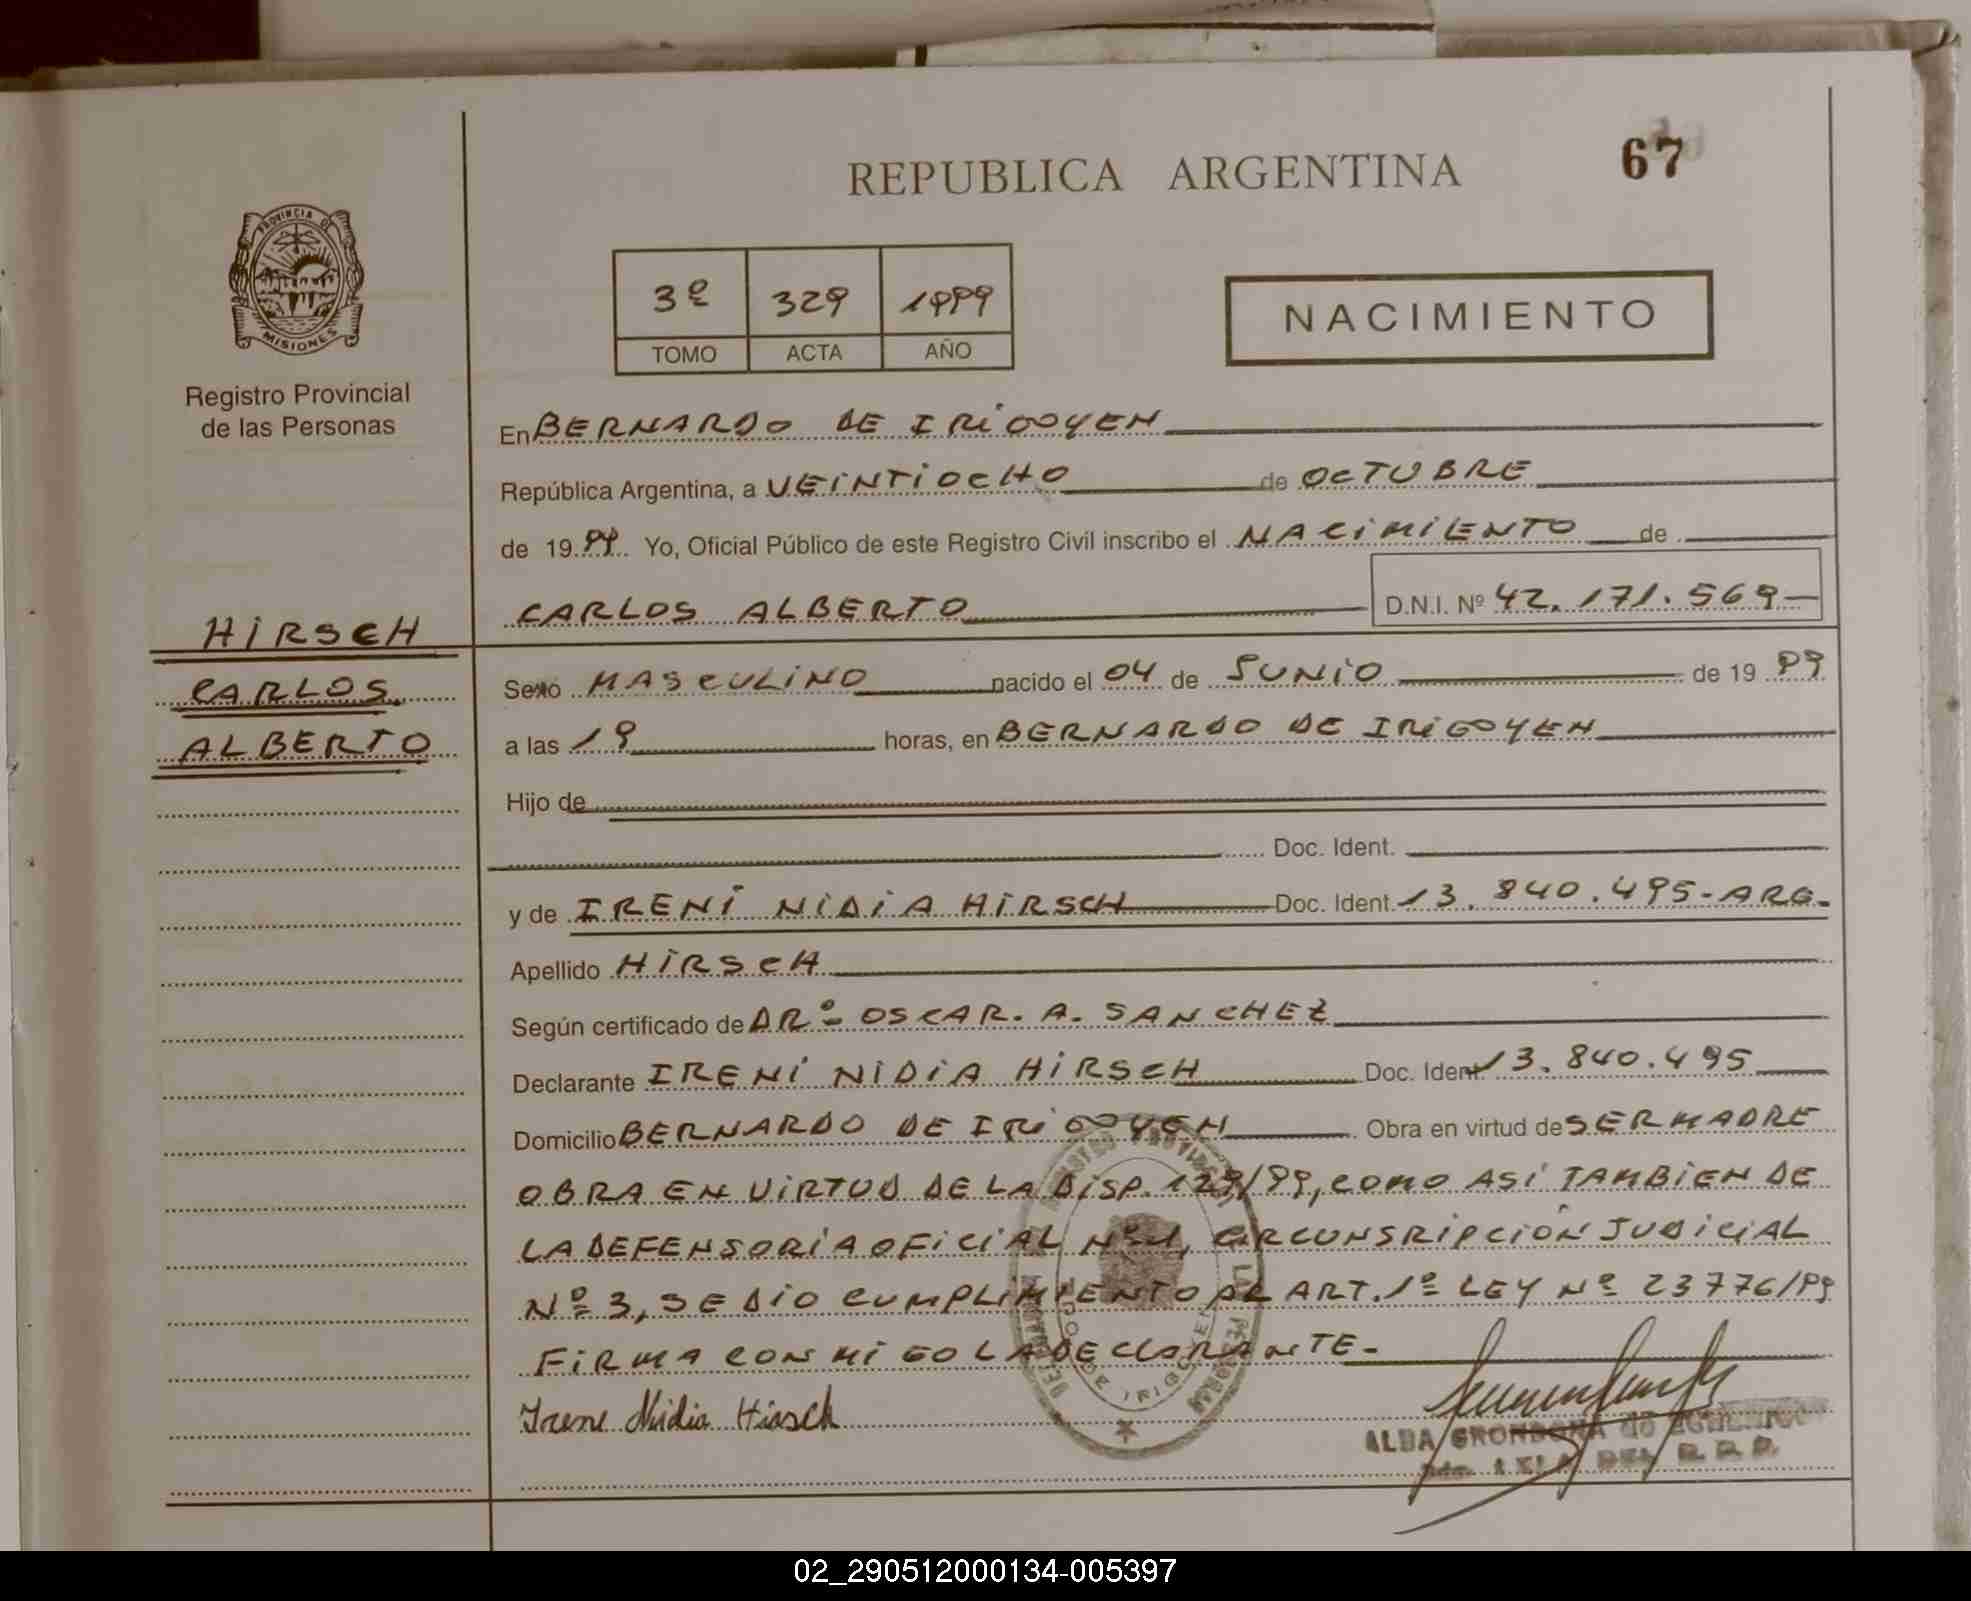 67
REPUBLICA ARGENTINA
PROVINCIA DE
MISIONES
Registro Provincial
de las Personas
3º 329 1999
TOMO ACTA AÑO
NACIMIENTO
En BERNARDO DE IRIGOYEN
República Argentina, a VEINTIOCHO de OCTUBRE
de 19 99 Yo, Oficial Público de este Registro Civil inscribo el NACIMIENTO de
CARLOS ALBERTO D.N.I. Nº 42.171.569
HIRSCH
CARLOS
ALBERTO
Sexo MASCULINO nacido el 04 de JUNIO de 19 99
a las 19 horas, en BERNARDO DE IRIGOYEN
Hijo de
Doc. Ident.
y de IRENI NIDIA HIRSCH Doc. Ident. 13.840.495-ARG.
Apellido HIRSCH
Según certificado de DRº OSCAR. A. SANCHEZ
Declarante IRENI NIDIA HIRSCH Doc. Ident 13.840.495
Domicilio BERNARDO DE IRIGOYEN Obra en virtud de SER MADRE
OBRA EN VIRTUD DE LA DISP. 129/99, COMO ASÍ TAMBIEN DE
LA DEFENSORÍA OFICIAL Nº 1, CIRCUNSRIPCIÓN JUDICIAL
Nº 3, SE DIO CUMPLIMIENTO AL ART. 1º LEY Nº 23776/99
FIRMA CONMIGO LA DECLARANTE-
Irene Nidia Hirsch
ALBA GRONDONA de
02_290512000134-005397